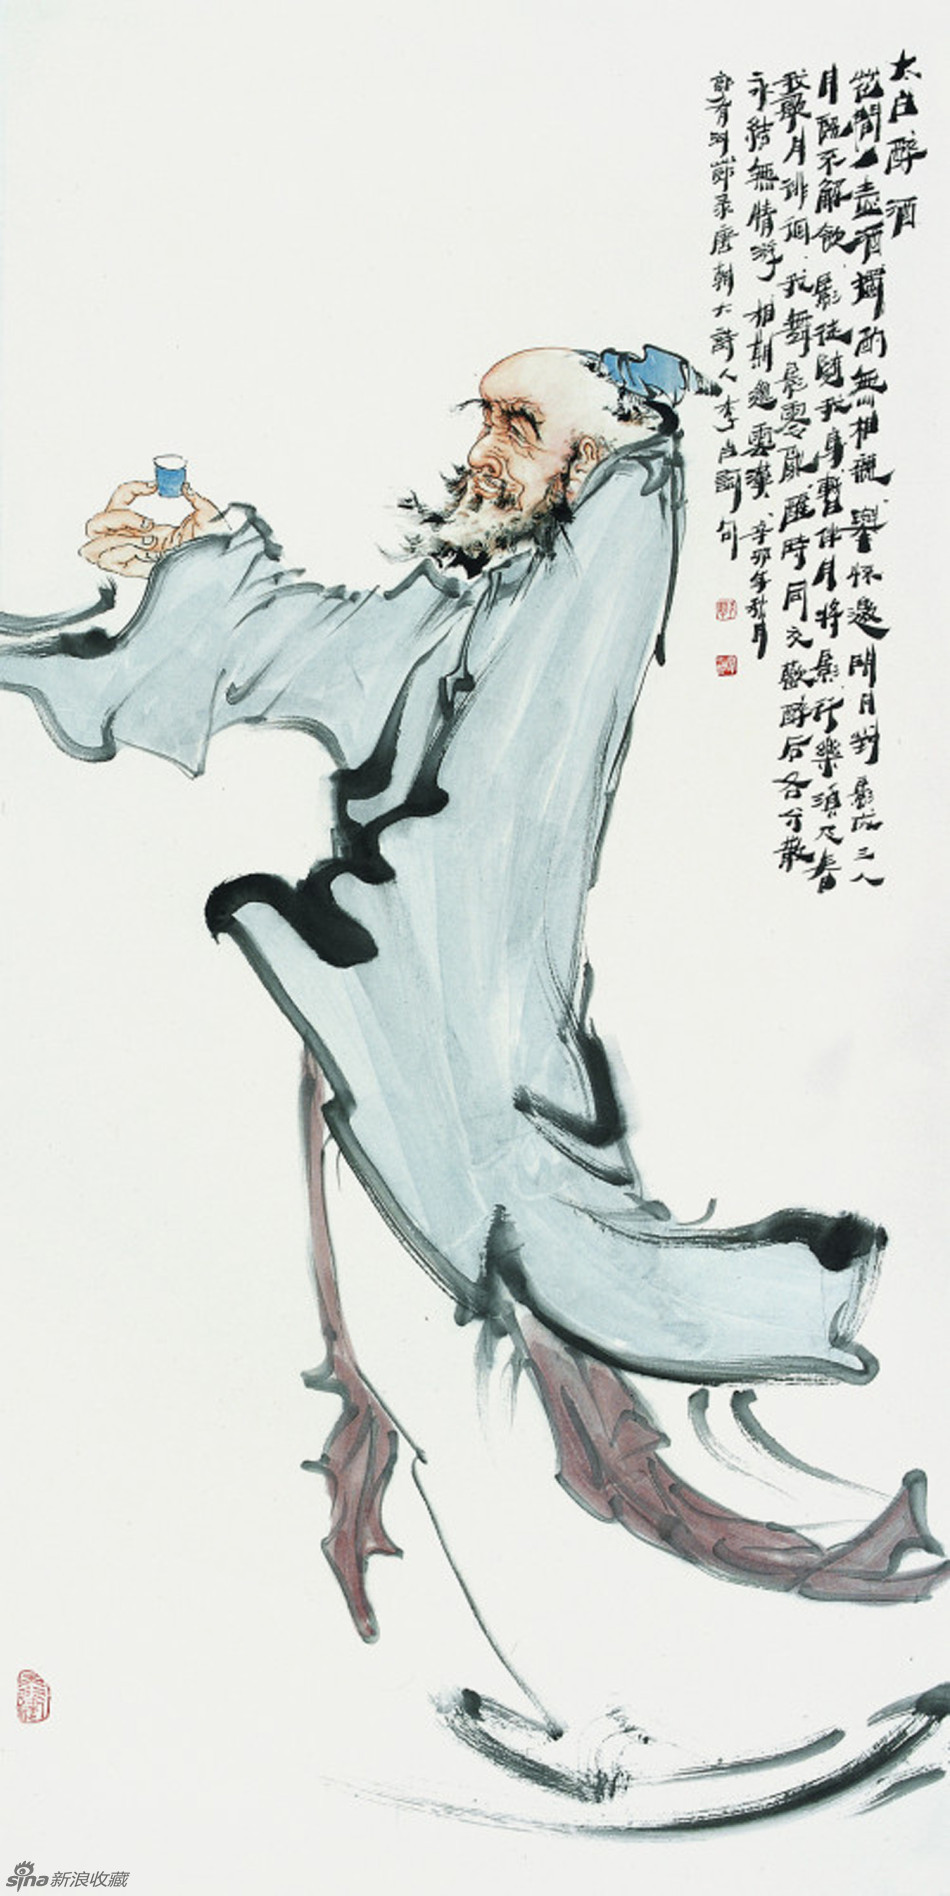 太白醉酒
花間一壺酒獨酌無相親舉杯邀明月對影成三人
月既不解飲影徒隨我身暫伴月將影行樂須及春
我歌月徘徊我舞影零亂醒時同交歡醉后各分散
永結無情游相期邈雲漢辛卯年秋月
郭有河節录唐朝大詩人李白詩句
sina新浪收藏